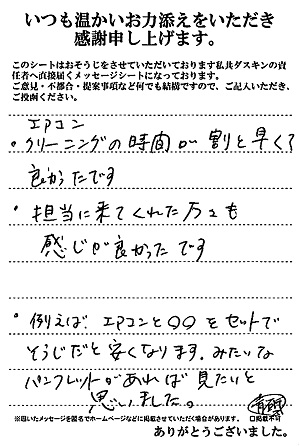 いつも温かいお力添えをいただき
感謝申し上げます。
このシートはおそうじをさせていただいております私共ダスキンの責
任者へ直接届くメッセージシートになっております。
ご意見・不都合・提案事項など何でも結構ですので、ご記入いただき、
ご投函ください。
エアコン
・クリーニングの時間が割と早くて
良かったです
・担当に来てくれた方々も
感じが良かったです
・例えば、エアコンと○○をセットで
そうじだと安くなります。みたいな
パンフレットがあれば見たいと
思いました。
※頂いたメッセージを匿名でホームページなどに掲載させていただく場合があります。 □掲載不可
ありがとうございました。